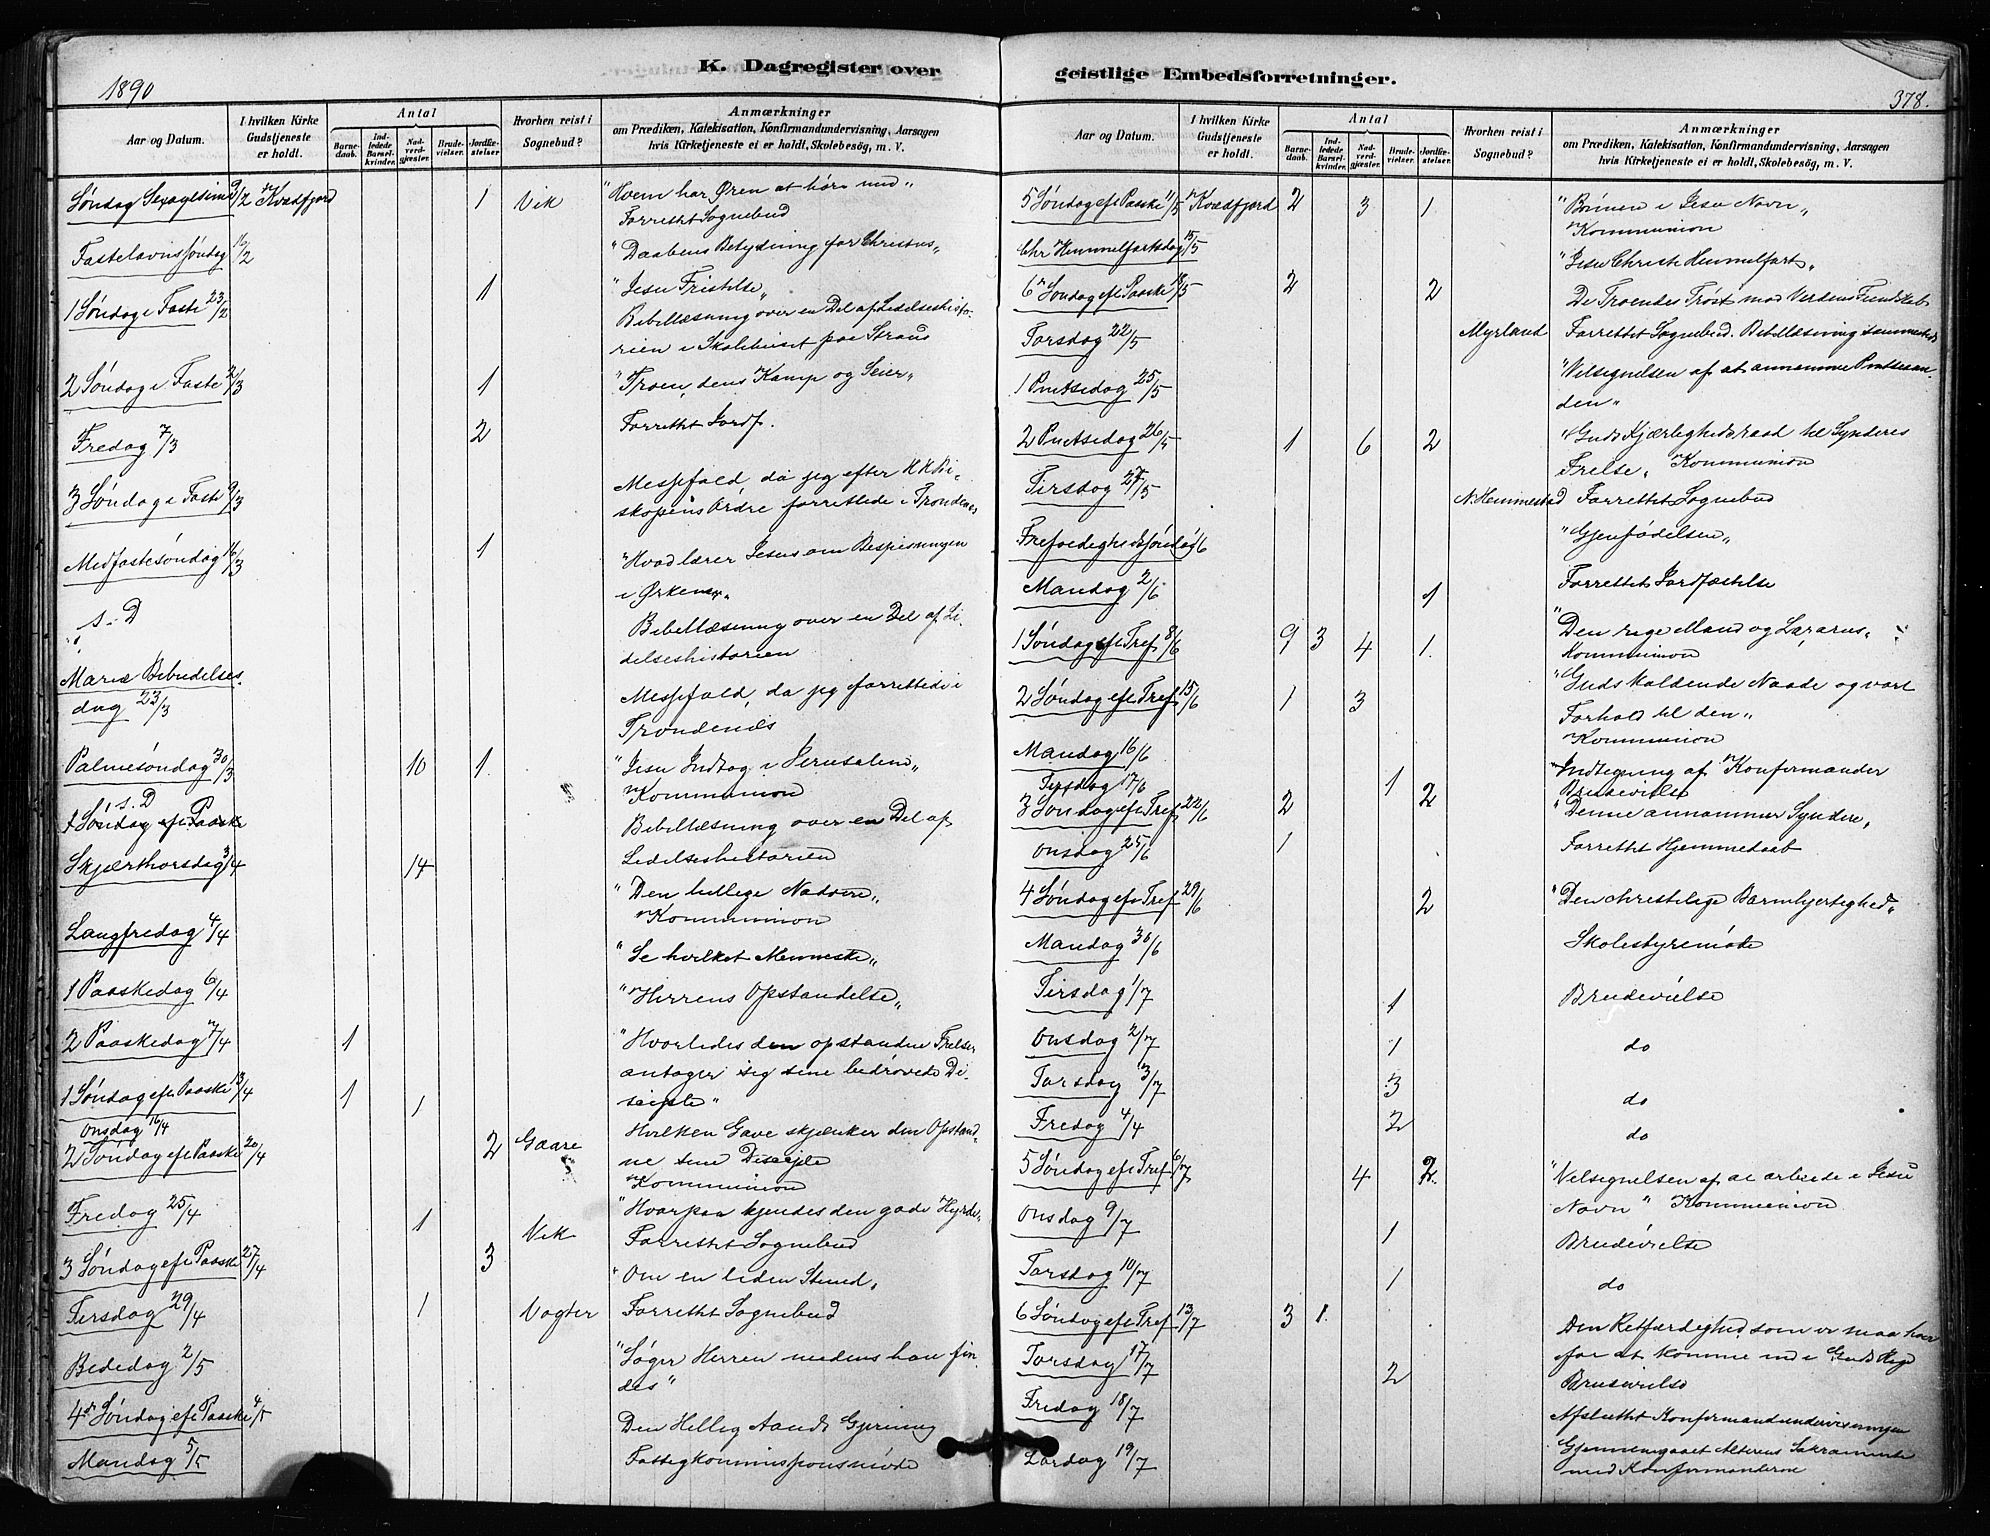 K. Dagregister over
1890
Aar og Datum.
I hvilken Kirke Gudstjeneste er holdt.
Antal
Barnedaab.
Indledede Barselkvinder.
Nadverdgjæster.
Brudevielser.
Jordfæstelser
Hvorhen reist i Sognebud?
Anmærkninger
om Prædiken, Katekisation, Konfirmandundervisning, Aarsagen
hvis Kirketjeneste ei er holdt, Skolebesög, m. V.
Søndag Sexagesima 9/2 Kvædfjord 1 Vik "Hvem har Øren at høre med"
Forrettet Sognebud
Fastelavnssøndag 16/2 "Daabens Betydning for Christus"
1 Søndag i Faste 23/2 1 "Jesu Fristelse"
Bibellæsning over en Del af Lidelseshisto-
rien i Skolehuset paa Strand
2 Søndag i Faste 2/3 1 "Troen, dens Kamp og Seier"
Fredag 7/3 2 Forrettet Jordf.
3 Søndag i Faste 9/3 Messefald, da jeg efter H H Bi-
skopens Ordre forrettede i Trondenes
Midfastesøndag 16/3 1 "Hvad lærer Jesus om Bespisningen
i Ørkenen"
s. D Bibellæsning over en Del af Li-
delseshistorien
Mariæ Bebudelses-
dag 23/3 Messefald, da jeg forrettede i
Trondenæs
Palmesøndag 30/3 10 1. "Jesu Indtog i Jerusalem"
Kommunion
s. D
1 Søndag eft Paaske Bibellæsning over en Del af
Lidelseshistorien
Skjærthorsdag 3/4 14
"Den hellige Nadvere"
Kommunion
Langfredag 4/4
"Se hvilket Menneske"
1 Paaskedag 6/4 "Herrens Opstandelse"
2 Paaskedag 7/4 1 "Hvorledes den opstandne Frelser
antager sig sine bedrøvede Di-
sciple"
1 Søndag eft Paaske 13/4 1 1
Onsdag 16/4
Hvilken Gave skjænker den Opstand-
ne sine Disciple
Kommunion
2 Søndag eft Paaske 20/4 2 Gaare
"Hvorpaa kjendes den gode Hyrde"
Fredag 25/4 1 Vik Forrettet Sognebud
3 Søndag eft Paaske 27/4 3 "Om en liden Stund"
Tirsdag 29/4 1 Vogter Forrettet Sognebud
Bededag 2/5 "Søger Herren medens han fin-
des"
4de Søndag eft Paaske 4/5 Den Hellig Aands Gjerning
Mandag 5/5 Fattigkommissionsmøde
geistlige Embedsforretninger.
378.
Aar og Datum.
I hvilken Kirke Gudstjeneste er holdt.
Antal
Barnedaab.
Indledede Barselkvinder.
Nadverdgjæster.
Brudevielser.
Jordfæstelser.
Hvorhen reist i Sognebud?
Anmærkninger
om Prædiken, Katekisation, Konfirmandundervisning, Aarsagen
hvis Kirketjeneste ei er holdt, Skolebesög, m. V.
5 Søndag eft Paaske 11/5 Kvædfjord 2 3 1 "Bønnen i Jesu Navn"
Kommunion
Chr Himmelfartsdag 15/5 "Jesu Christi Himmelfart"
6te Søndag eft Paaske 18/5 2 2 De Troendes Trøst mod Verdens Fiendskab
Torsdag 22/5 Myrland Forrettet Sognebud. Bibellæsning sammested
1 Pintsedag 25/5 "Velsignelsen af at annamme Pintseaan-
den"
2 Pintsedag 26/5 1 6 2 "Guds Kjærlighedsraad til Synderes
Frelse" Kommunion
Tirsdag 27/5 N. Hemmestad Forrettet Sognebud
Trefoldighedssøndag 1/6 "Gjenfødelsen"
Mandag 2/6 1 Forrettet Jordfæstelse
1 Søndag eft Tref 8/6 9 3 4 1. "Den rige Mand og Lazarus"
Kommunion
2 Søndag eft Tref 15/6 1 3 "Guds kaldende Naade og vort
Forhold til den"
Kommunion
Mandag 16/6 Indtegning af Konfirmander
Tirsdag 17/6 1 Brudevielse
3 Søndag eft Tref 22/6 2 2 "Denne annammer Syndere"
Onsdag 25/6 1 Forrettet Hjemmedaab
4 Søndag eft Tref 29/6 2 "Den christelige Barmhjertighed"
Mandag 30/6 Skolestyremøde
Tirsdag 1/7 1 Brudevielse
Onsdag 2/7 1 do
Torsdag 3/7 3 do
Fredag 4/4 2 do
5 Søndag eft Tref 6/7 4 2. "Velsignelsen af at arbeide i Jesu
Navn" Kommunion
Onsdag 9/7 1 Brudevielse
Torsdag 10/7 1 do
6 Søndag eft Tref 13/7 3 1. Den Retfærdighed, som vi maa have
for at komme ind i Guds Rige
Torsdag 17/7 2 Brudevielse
Fredag 18/7 Afsluttet Konfirmandundervisningen
Lørdag 19/7 Gjennemgaaet Alterens Sakramente
med Konfirmanterne